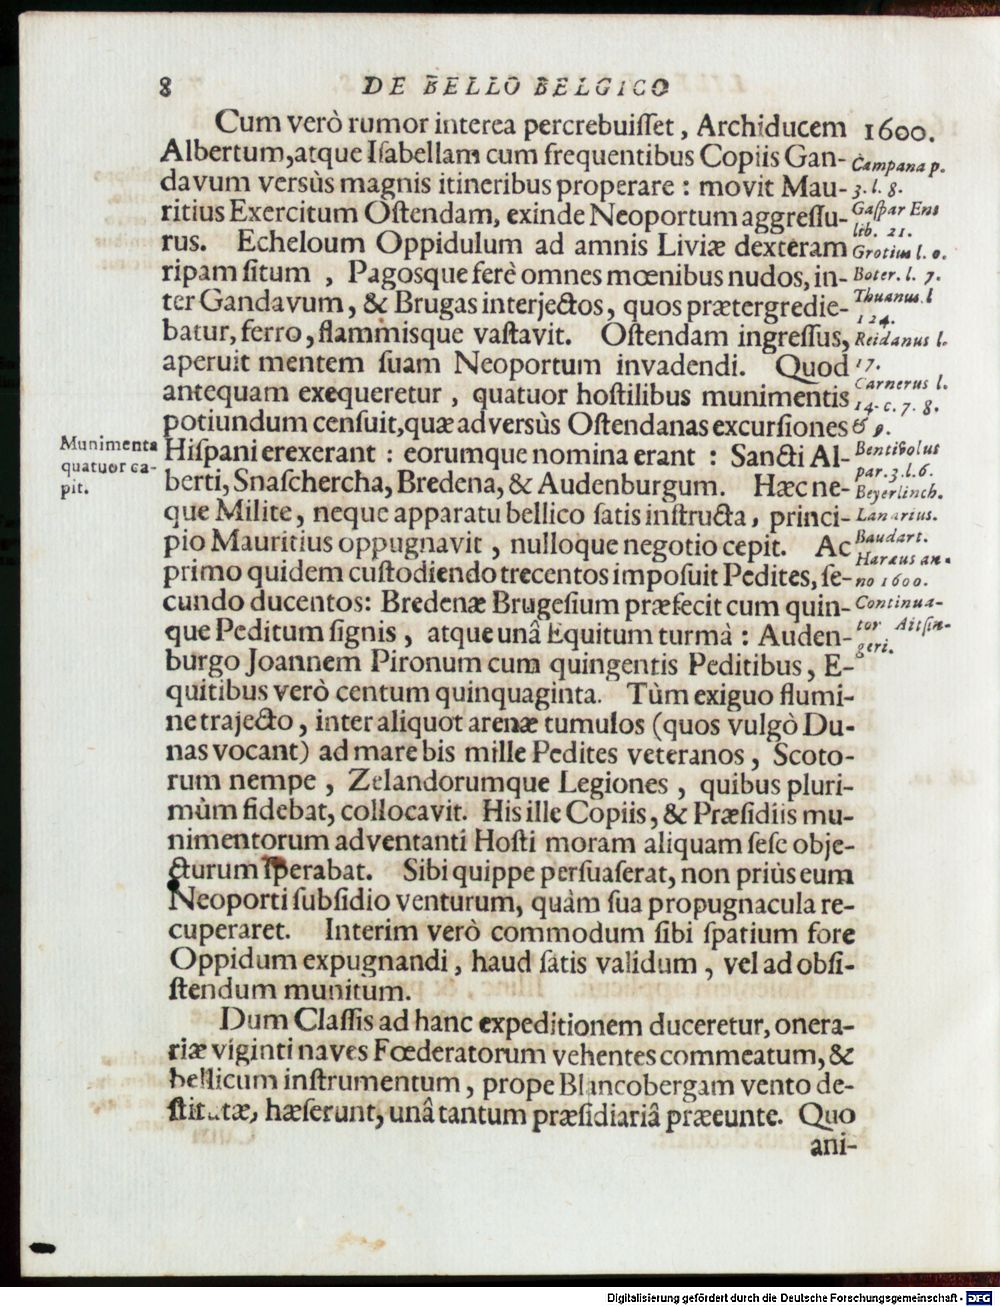 8 DE BELLO BELGICO
Cum verò rumor interea percrebuiſſet, Archiducem
Albertum, atque Iſabellam cum frequentibus Copiis Gan-
davum versùs magnis itineribus properare : movit Mau-
ritius Exercitum Oſtendam, exinde Neoportum aggreſſu-
rus. Echeloum Oppidulum ad amnis Liviæ dexteram
ripam ſitum , Pagosque ferè omnes mœnibus nudos, in-
ter Gandavum, & Brugas interjectos, quos prætergredie-
batur, ferro, flammisque vaſtavit. Oſtendam ingreſſus,
aperuit mentem ſuam Neoportum invadendi. Quod
antequam exequeretur , quatuor hoſtilibus munimentis
potiundum cenſuit, quæ adversùs Oſtendanas excurſiones
Hiſpani erexerant : eorumque nomina erant : Sancti Al-
berti, Snaſchercha, Bredena, & Audenburgum. Hæc ne-
que Milite, neque apparatu bellico ſatis inſtructa, princi-
pio Mauritius oppugnavit , nulloque negotio cepit. Ac
primo quidem cuſtodiendo trecentos impoſuit Pedites, ſe-
cundo ducentos: Bredenæ Brugeſium præfecit cum quin-
que Peditum ſignis , atque unâ Equitum turmâ : Auden-
burgo Joannem Pironum cum quingentis Peditibus, E-
quitibus verò centum quinquaginta. Tùm exiguo flumi-
ne trajecto, inter aliquot arenæ tumulos (quos vulgò Du-
nas vocant) ad mare bis mille Pedites veteranos, Scoto-
rum nempe , Zelandorumque Legiones , quibus pluri-
mùm fidebat, collocavit. His ille Copiis, & Præſidiis mu-
nimentorum adventanti Hoſti moram aliquam ſeſe obje-
cturum ſperabat. Sibi quippe perſuaſerat, non priùs eum
Neoporti ſubſidio venturum, quàm ſua propugnacula re-
cuperaret. Interim verò commodum ſibi ſpatium fore
Oppidum expugnandi, haud ſatis validum , vel ad obſi-
ſtendum munitum.
Dum Claſſis ad hanc expeditionem duceretur, onera-
riæ viginti naves Fœderatorum vehentes commeatum, &
bellicum inſtrumentum , prope Blancobergam vento de-
ſtitutæ, hæſerunt, unâ tantum præſidiariâ præeunte. Quo
ani-
Munimenta
quatuor ca-
pit.
1600.
Campana p.
3. l. 8.
Gaſpar Ens
lib. 21.
Grotius l. 0.
Boter. l. 7.
Thuanus l
124.
Reidanus l.
17.
Carnerus l.
14. c. 7. 8.
& 9.
Bentivolus
par. 3. l. 6.
Beyerlinch.
Lanarius.
Baudart.
Haræus an-
no 1600.
Continua-
tor Aitſin-
geri.
Digitalisierung gefördert durch die Deutsche Forschungsgemeinschaft - DFG